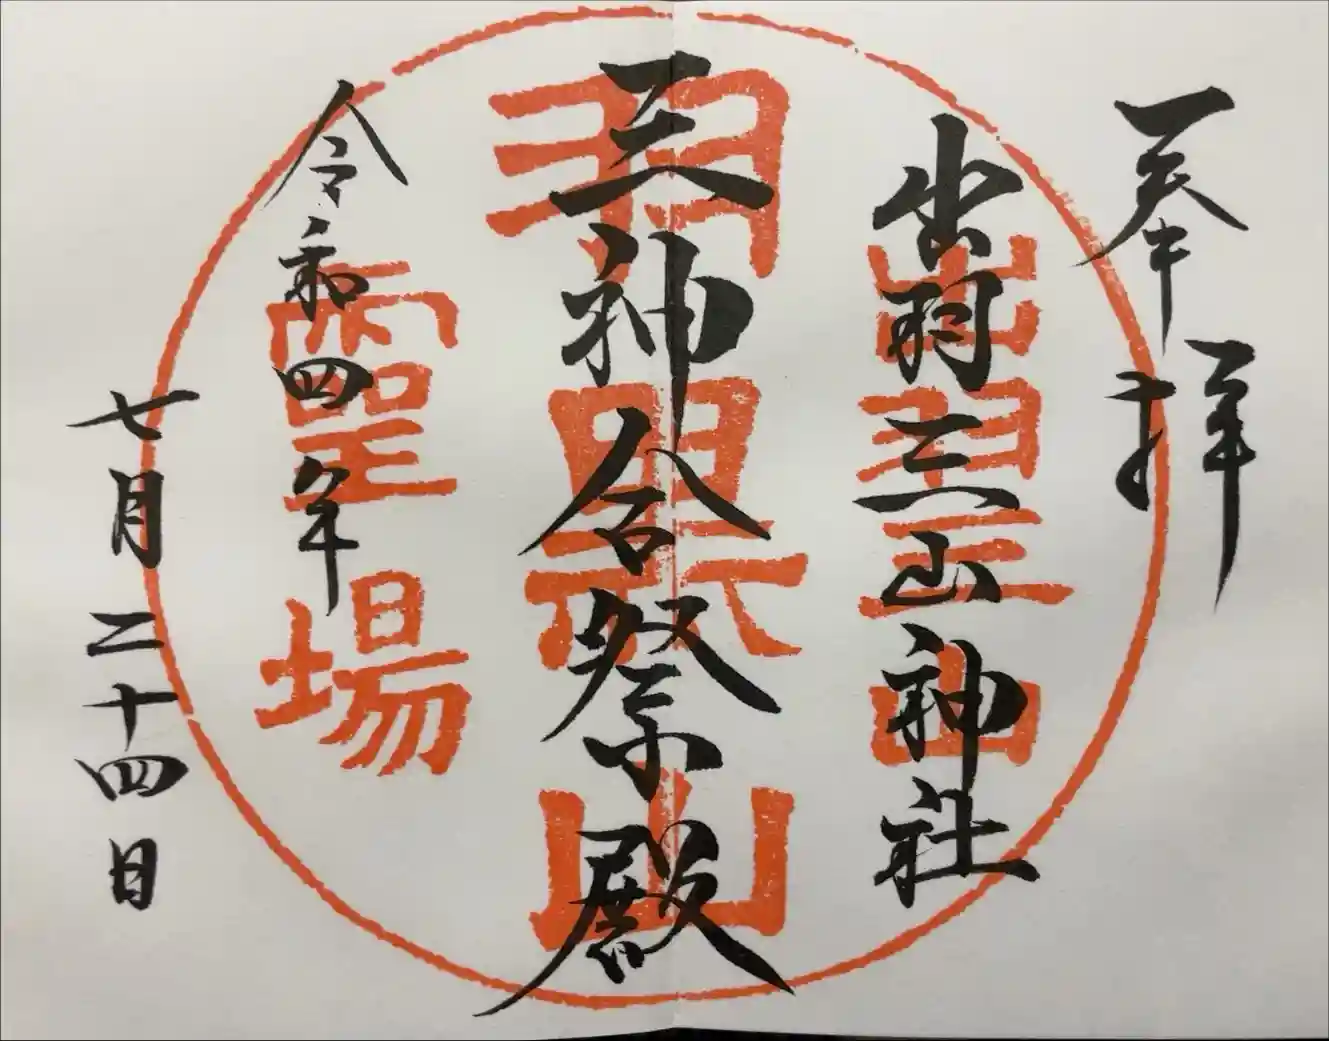 奉拝
出羽三山神社
三神合祭殿
令和四年
七月二十四日
出羽三山
羽黒山
霊場